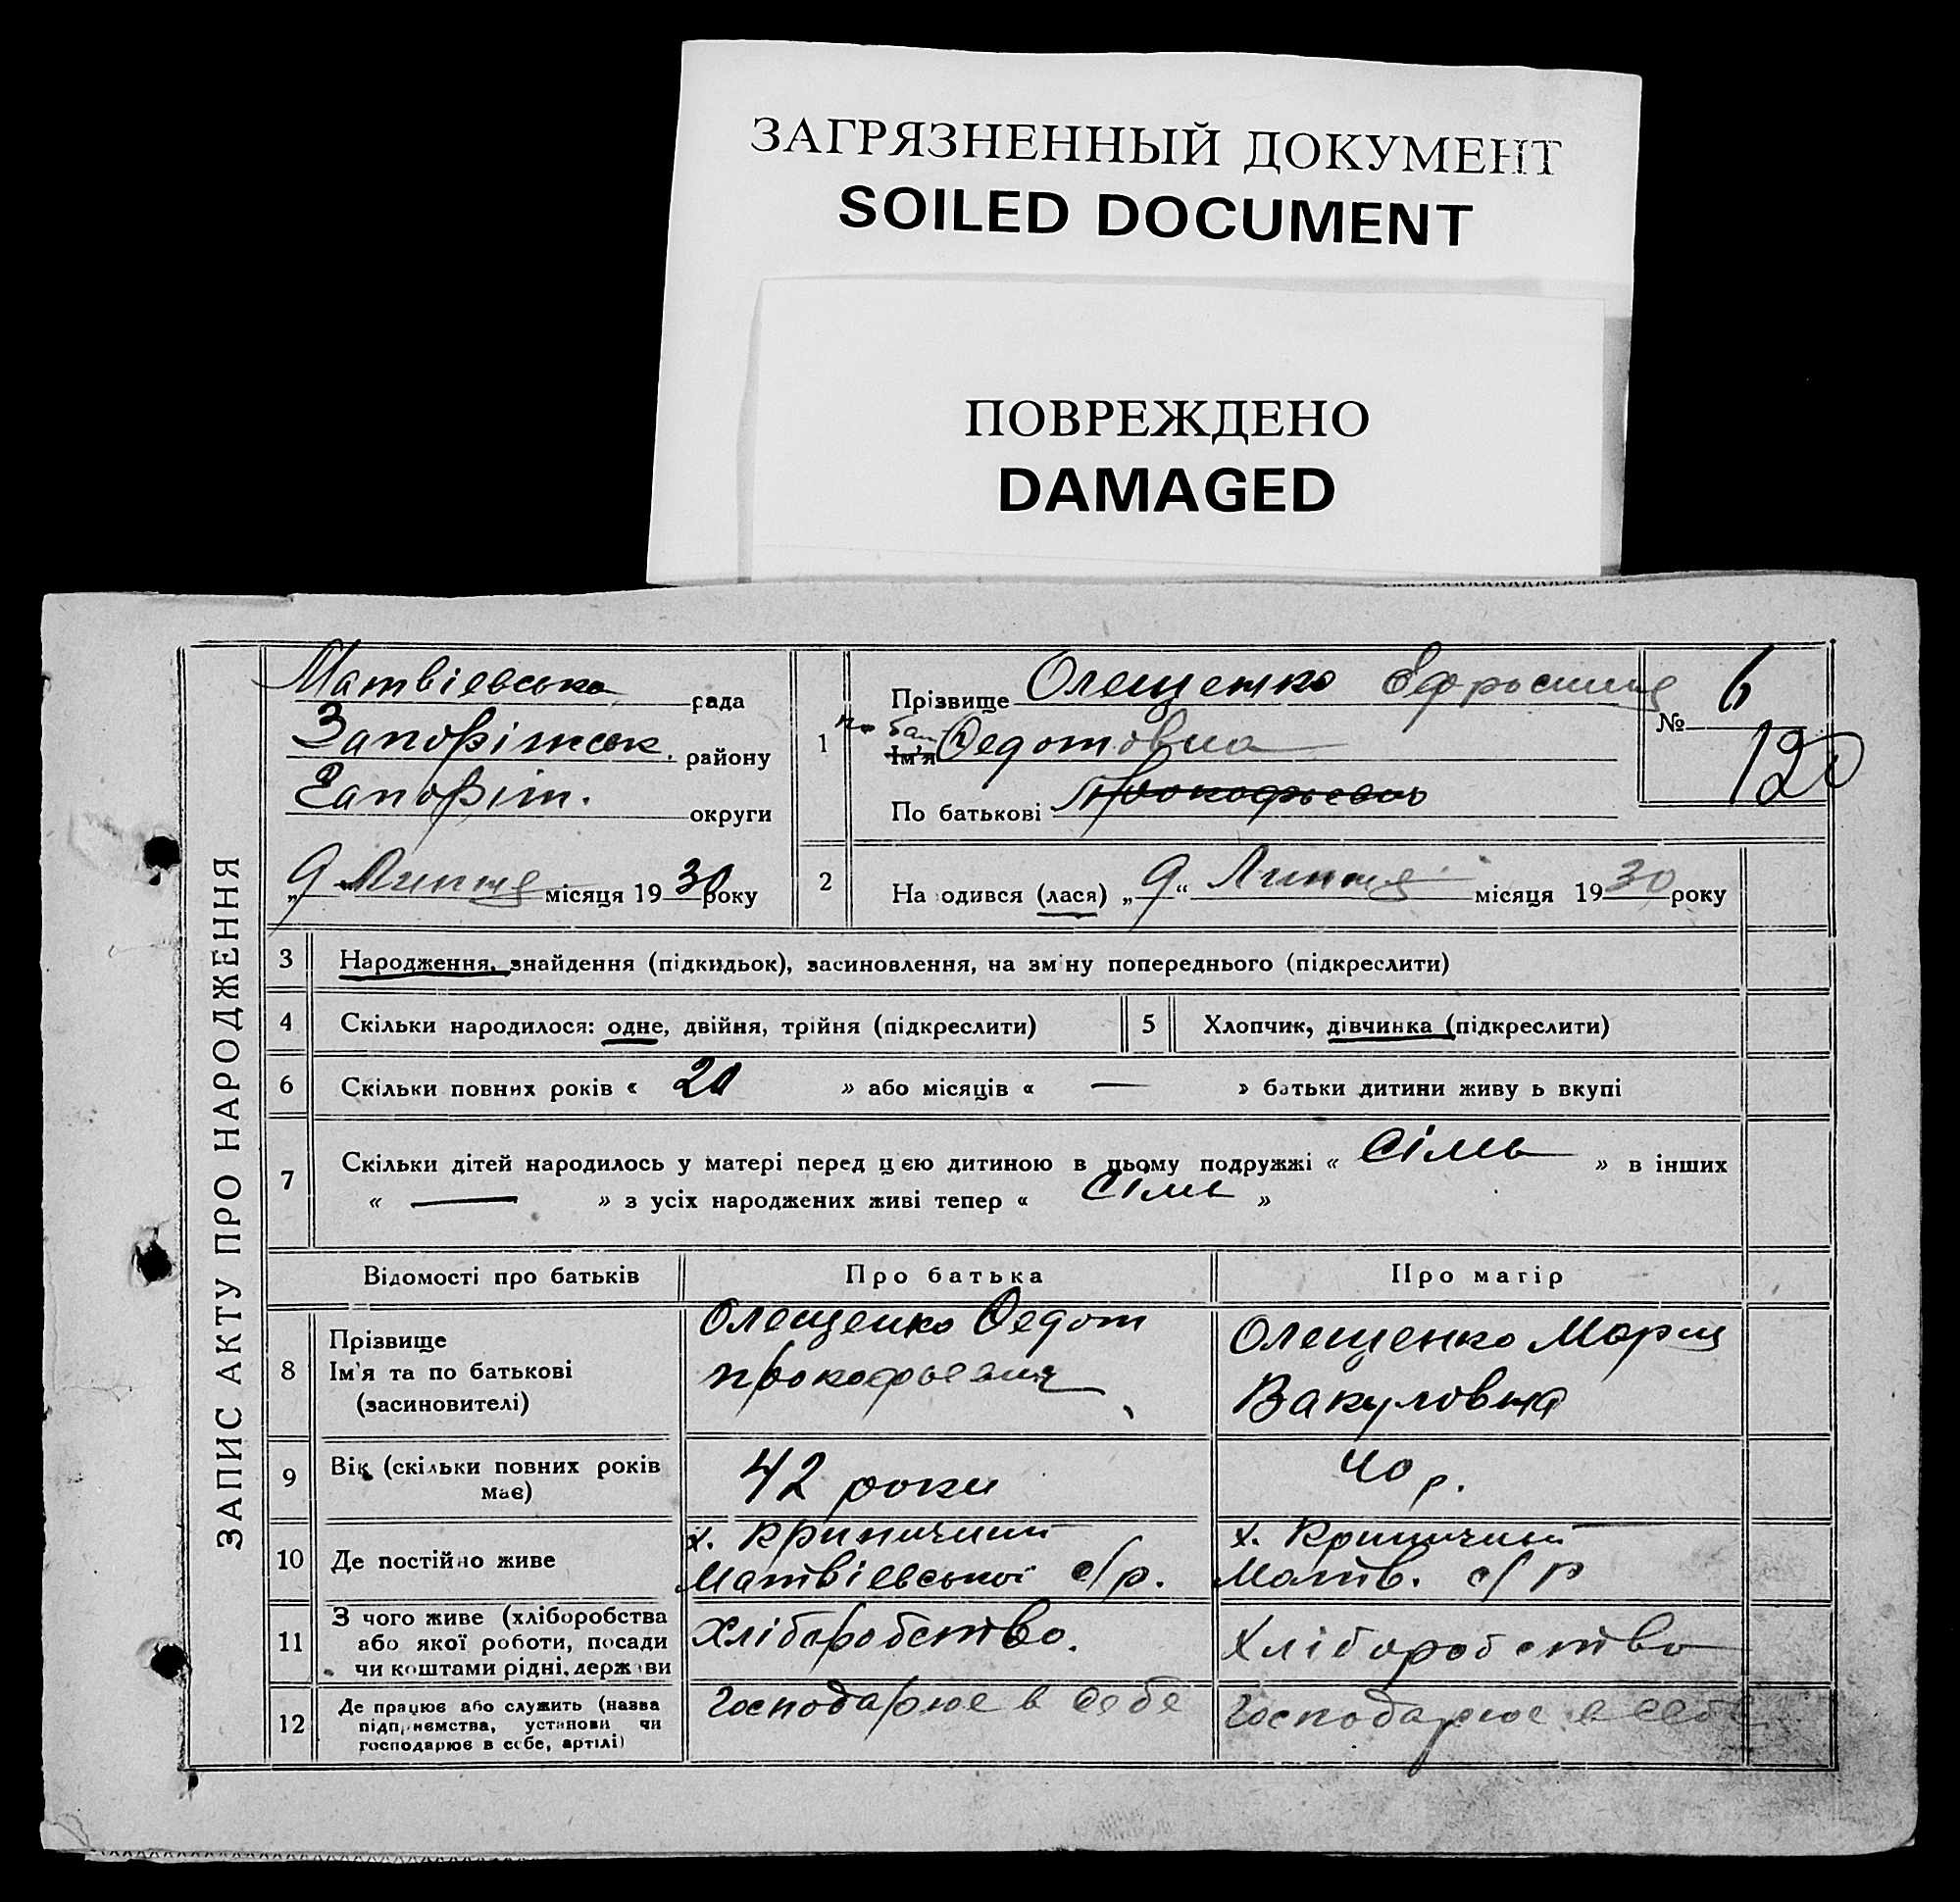 ЗАГРЯЗНЕННЫЙ ДОКУМЕНТ
SOILED DOCUMENT
ПОВРЕЖДЕНО
DAMAGED
ЗАПИС АКТУ ПРО НАРОДЖЕННЯ
Матвіевська рада
Запоріжськ. району
Запоріж. округи
„9 Липня місяця 1930 року
1
Прізвище Олещенко Ефросиния
по бат
Ім'я Федотовна
По батькові Прокофьевна
№ 6
120
2 На одився (лася) „9“ Липня місяця 1930 року
3 Народження, знайдення (підкидьок), засиновлення, на зміну попереднього (підкреслити)
4 Скільки народилося: одне, двійня, трійня (підкреслити) 5 Хлопчик, дівчинка (підкреслити)
6 Скільки повних років « 20 » або місяців « — » батьки дитини живу ь вкупі
7 Скільки дітей народилось у матері перед цією дитиною в цьому подружжі « Сімь » в інших
« — » з усіх народжених живі тепер « Сімь »
Відомості про батьків Про батька Про матір
8 Прізвище
Ім'я та по батькові
(засиновителі)
Олещенко Федот
Прокофьевич
Олещенко Мария
Вакуловна
9 Вік (скільки повних років
має)
42 роки
40 р.
10 Де постійно живе
х. Криничний
Матвіевської с/р.
х. Криничний
Матв. с/р
11 З чого живе (хліборобства
або якої роботи, посади
чи коштами рідні, держави
Хліборобство.
Хліборобство
12 Де працює або служить (назва
підприємства, установи чи
господарює в себе, артілі)
Господарює в себе
Господарює в себе